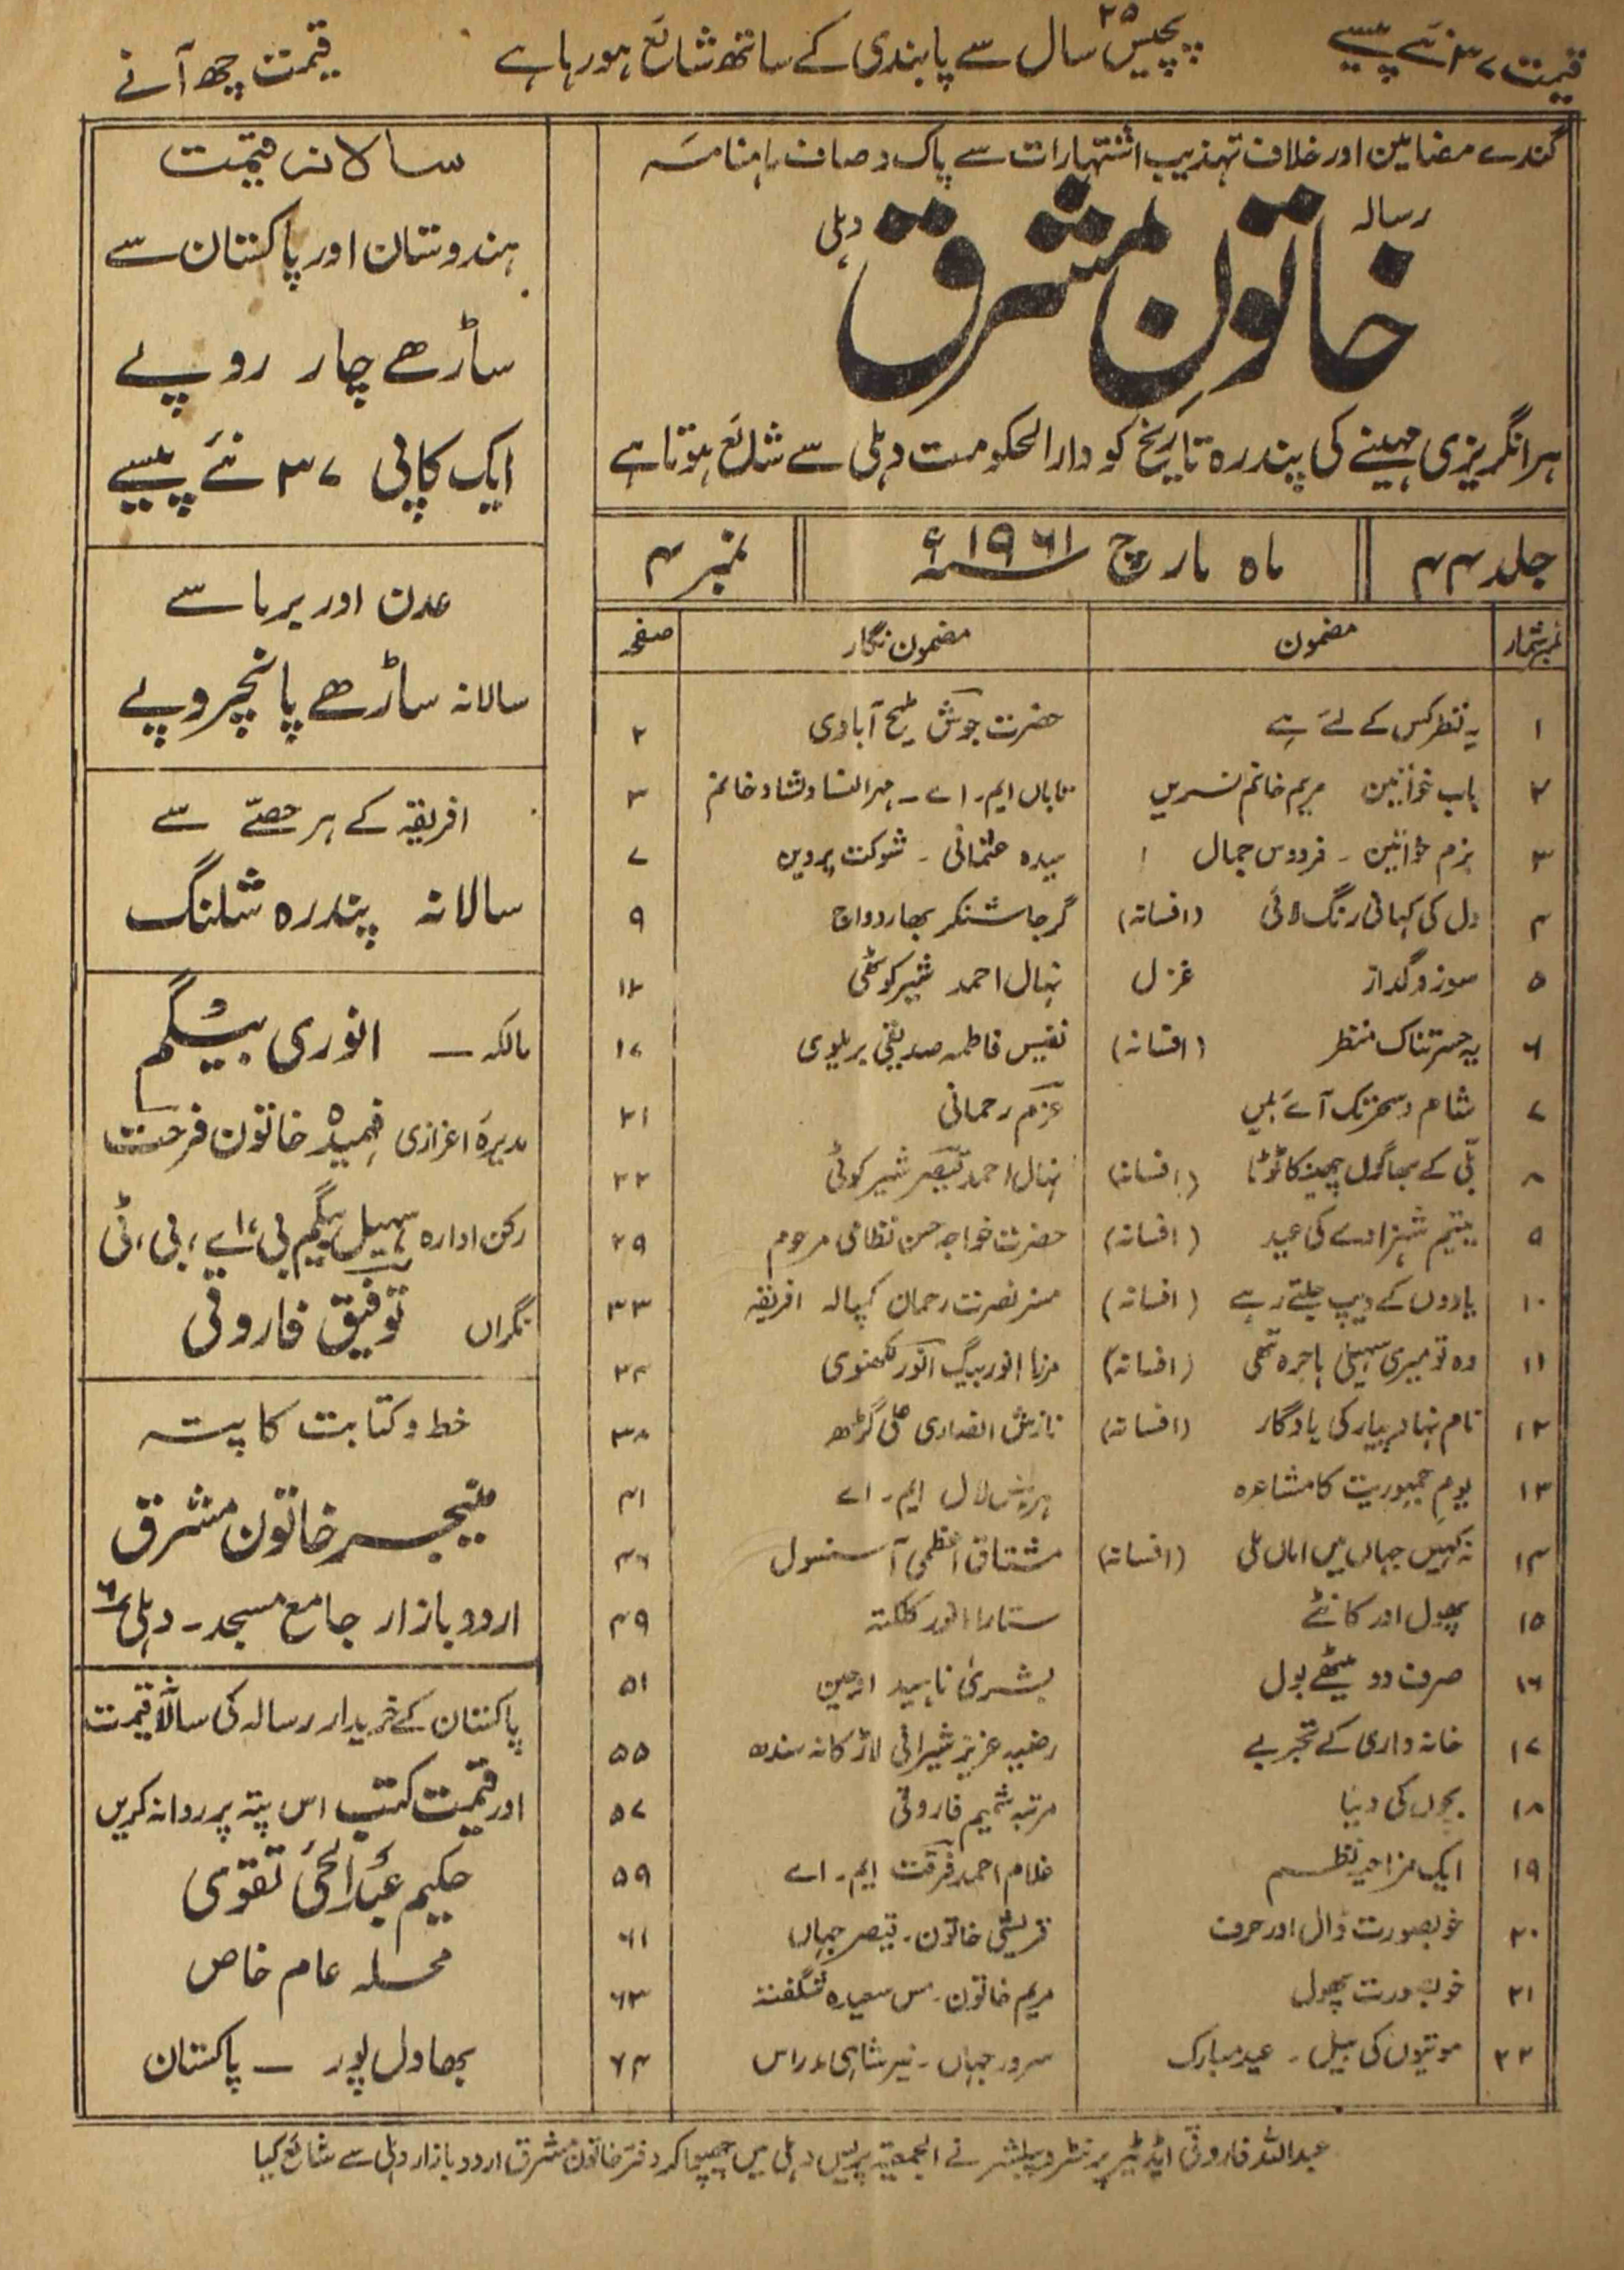 قیمت ۳۷ نئے پیسے
پچیس ۲۵ سال سے پابندی کے ساتھ شائع ہو رہا ہے
قیمت چھ آنے
گندے مضامین اور خلاف تہذیب اشتہارات سے پاک و صاف ماہنامہ
رسالہ
خاتون مشرق دہلی
ہر انگریزی مہینے کی پندرہ تاریخ کو دارالحکومت دہلی سے شائع ہوتا ہے
جلد ۴۴ ماہ مارچ ۱۹۶۱ء نمبر ۴
نمبر شمار مضمون مضمون نگار صفحہ
۱ یہ نظر کس کے لئے ہے حضرت جوش ملیح آبادی ۲
۲ باب خواتین مریم خانم نسریں تاباں ایم۔ اے۔ مہرالنسا دلشاد خانم ۳
۳ بزم خواتین ۔ فردوس جمال سیدہ عثمانی ۔ شوکت پروین ۷
۴ دل کی کہانی رنگ لائی (افسانہ) گرجا شنکر بھاردواج ۹
۵ سوز و گداز غزل نہال احمد شیرکوٹی ۱۶
۶ یہ حسرتناک منظر (افسانہ) نفیس فاطمہ صدیقی بریلوی ۱۷
۷ شام و سحر تک آئے ہلیں عزم رحمانی ۲۱
۸ بلی کے بھاگوں چھینکا ٹوٹا (افسانہ) نہال احمد قیصر شیرکوٹی ۲۲
۹ یتیم شہزادے کی عید (افسانہ) حضرت خواجہ حسن نظامی مرحوم ۲۹
۱۰ یادوں کے دیپ جلتے رہے (افسانہ) مسز نصرت رحمان کمپالہ افریقہ ۳۳
۱۱ وہ تو میری سہیلی ہاجرہ تھی (افسانہ) مرزا انور بیگ انور لکھنوی ۳۴
۱۲ نام نہاد پیار کی یادگار (افسانہ) نازش انصاری علی گڑھ ۳۸
۱۳ یوم جمہوریت کا مشاعرہ ہربنس لال ایم۔ اے ۴۱
۱۴ نہ کہیں جہاں میں اماں ملی (افسانہ) مشتاق اعظمی آسنسول ۴۶
۱۵ پھول اور کانٹے ستارا انور کلکتہ ۴۹
۱۶ صرف دو میٹھے بول بشریٰ ناہید اوجین ۵۱
۱۷ خانہ داری کے تجربے رضیہ عزیز شیرانی لاڑکانہ سندھ ۵۵
۱۸ بچوں کی دنیا مرتبہ شمیم فاروقی ۵۷
۱۹ ایک مزاحیہ نظم غلام احمد فرقت ایم۔ اے ۵۹
۲۰ خوبصورت ڈال اور حرف قریشی خاتون۔ قیصر جہاں ۶۱
۲۱ خوبصورت پھول مریم خاتون۔ مس سعیدہ شگفتہ ۶۳
۲۲ موتیوں کی بیل ۔ عید مبارک سرور جہاں ۔ نیر شاہی مدراس ۶۴
سالانہ قیمت
ہندوستان اور پاکستان سے
ساڑھے چار روپے
ایک کاپی ۳۷ نئے پیسے
عدن اور برما سے
سالانہ ساڑھے پانچ روپے
افریقہ کے ہر حصّے سے
سالانہ پندرہ شلنگ
مالکہ ــ انوری بیگم
مدیرہ اعزازی فہمیدہ خاتون فرحت
رکن ادارہ سہیل بیگم بی، اے، بی، ٹی
نگراں توفیق فاروقی
خط و کتابت کا پتہ
منیجر خاتون مشرق
اردو بازار جامع مسجد۔ دہلی ۶
پاکستان کے خریدار رسالہ کی سالانہ قیمت
اور قیمت کتب اس پتہ پر روانہ کریں
حکیم عبدالحئی نقوی
محلہ عام خاص
بھاول پور ــ پاکستان
عبداللہ فاروقی ایڈیٹر پرنٹر و پبلشر نے الجمعیۃ پریس دہلی میں چھپوا کر دفتر خاتون مشرق اردو بازار دہلی سے شائع کیا